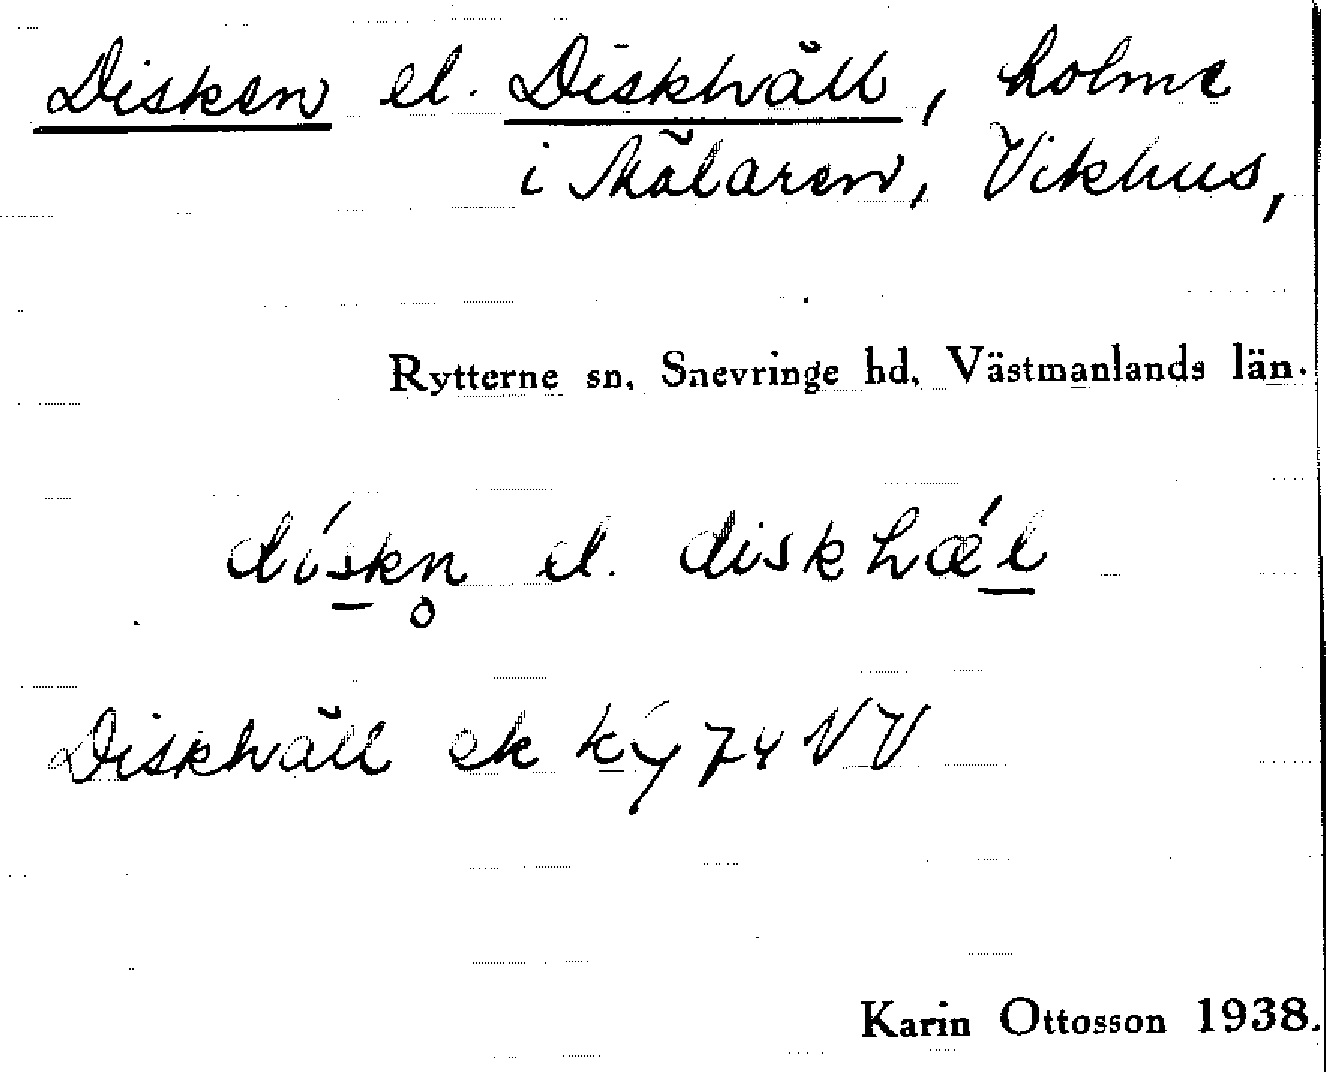 Disken el. Diskhäll, holme
i Mälaren, Vikhus,
Rytterne sn, Snevringe hd, Västmanlands län.
dískn̥ el. diskhǽl
Diskhäll ek
Karin Ottosson 1938.